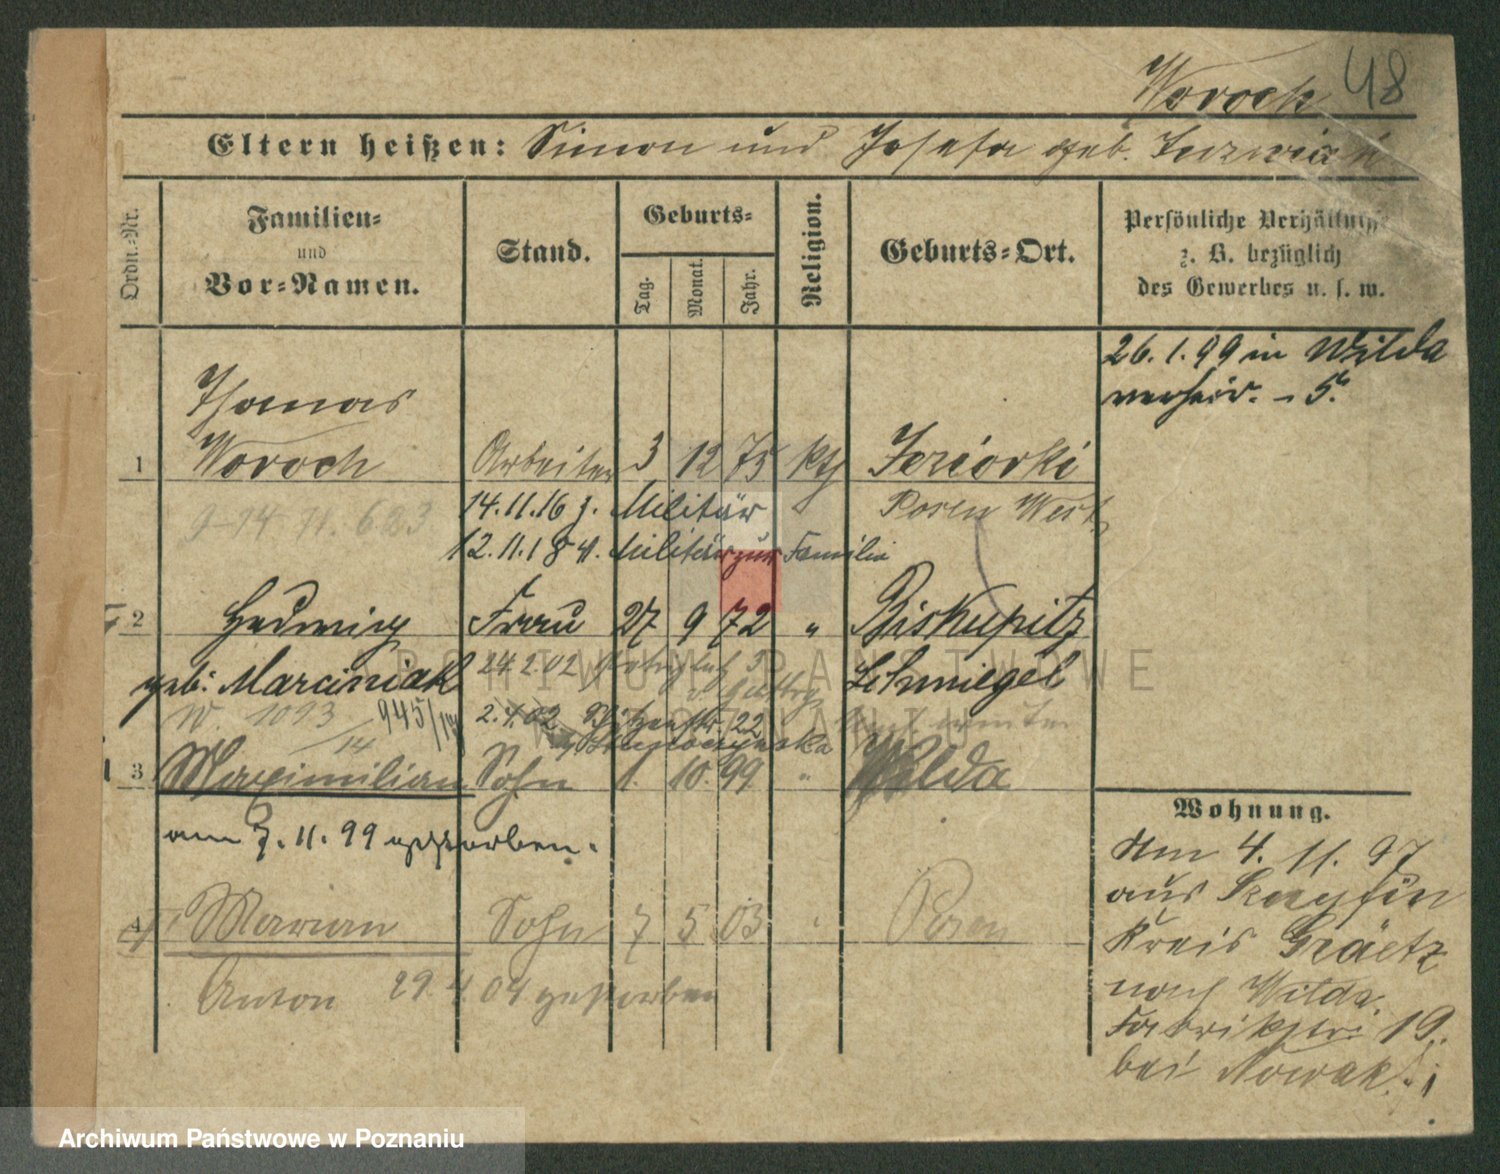 Woroch 48
Eltern heißen: Simon und Josefa geb.
Ordn.-Nr.
Familien-
und
Vor-Namen.
Stand.
Geburts-
Tag.
Monat.
Jahr.
Religion.
Geburts-Ort.
Persönliche Verhältnisse
z. B. bezüglich
des Gewerbes u. s. w.
26. 1. 99 in Wilda
verheir. - 5.
Thomas
1 Woroch Arbeiter 3 12 75 kth Jeziorki
14.11.16 z. Militär Posen West
12.11.18 v. Militär zur Familie
2 Hedwig Frau 27 9 72 " Biskupitz
geb. Marciniak 24.2.02 Schmiegel
W. 1093 945/14 2.4.02 22
14
3 Maximilian Sohn 1. 10. 99 " Wilda
am 7. 11. 99 gestorben.
4 Marian Sohn 7 5 03 " Posen
Anton 29. 4. 04 gestorben
Wohnung.
Am 4. 11. 97
aus
Kreis Graetz
nach Wilda.
Fabrikstr. 19.
bei Nowak.
ARCHIWUM PAŃSTWOWE
W POZNANIU
Archiwum Państwowe w Poznaniu